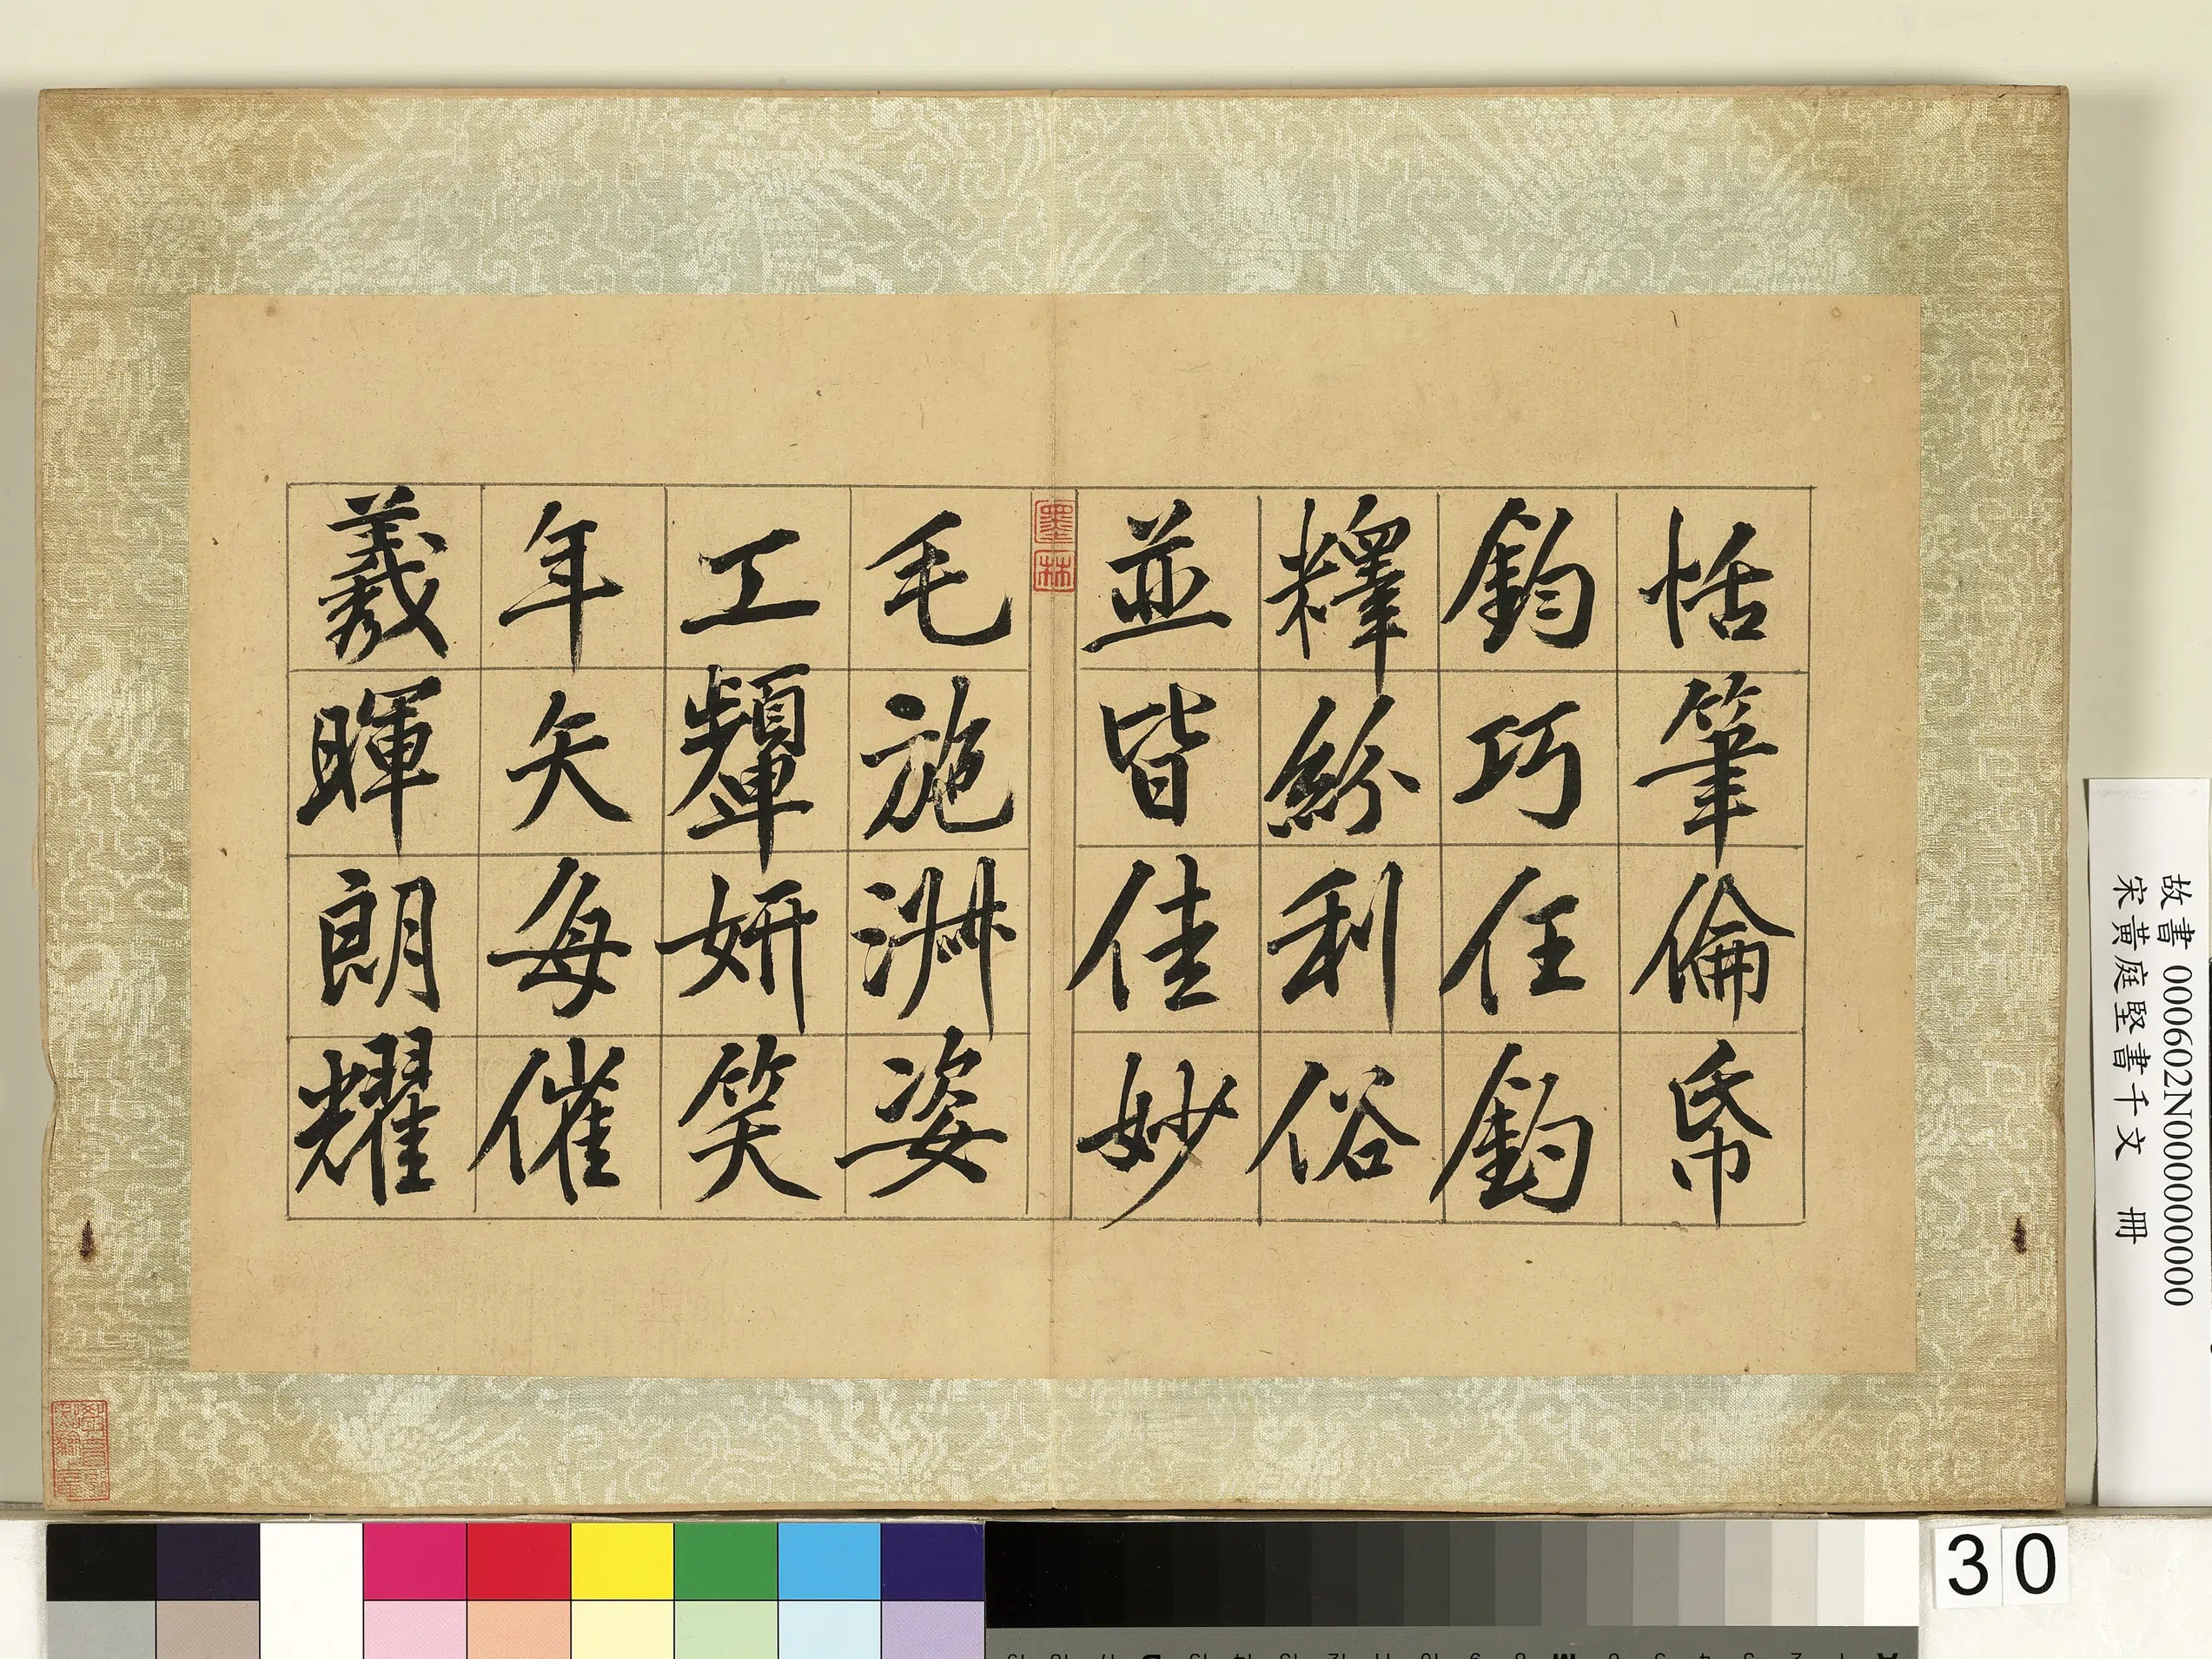 恬筆倫帋
鈞巧任釣
釋紛利俗
並皆佳妙
墨林
毛施淑姿
工顰妍笑
年矢每催
羲暉朗耀
故書 000602N000000000
宋黃庭堅書千文 冊
30